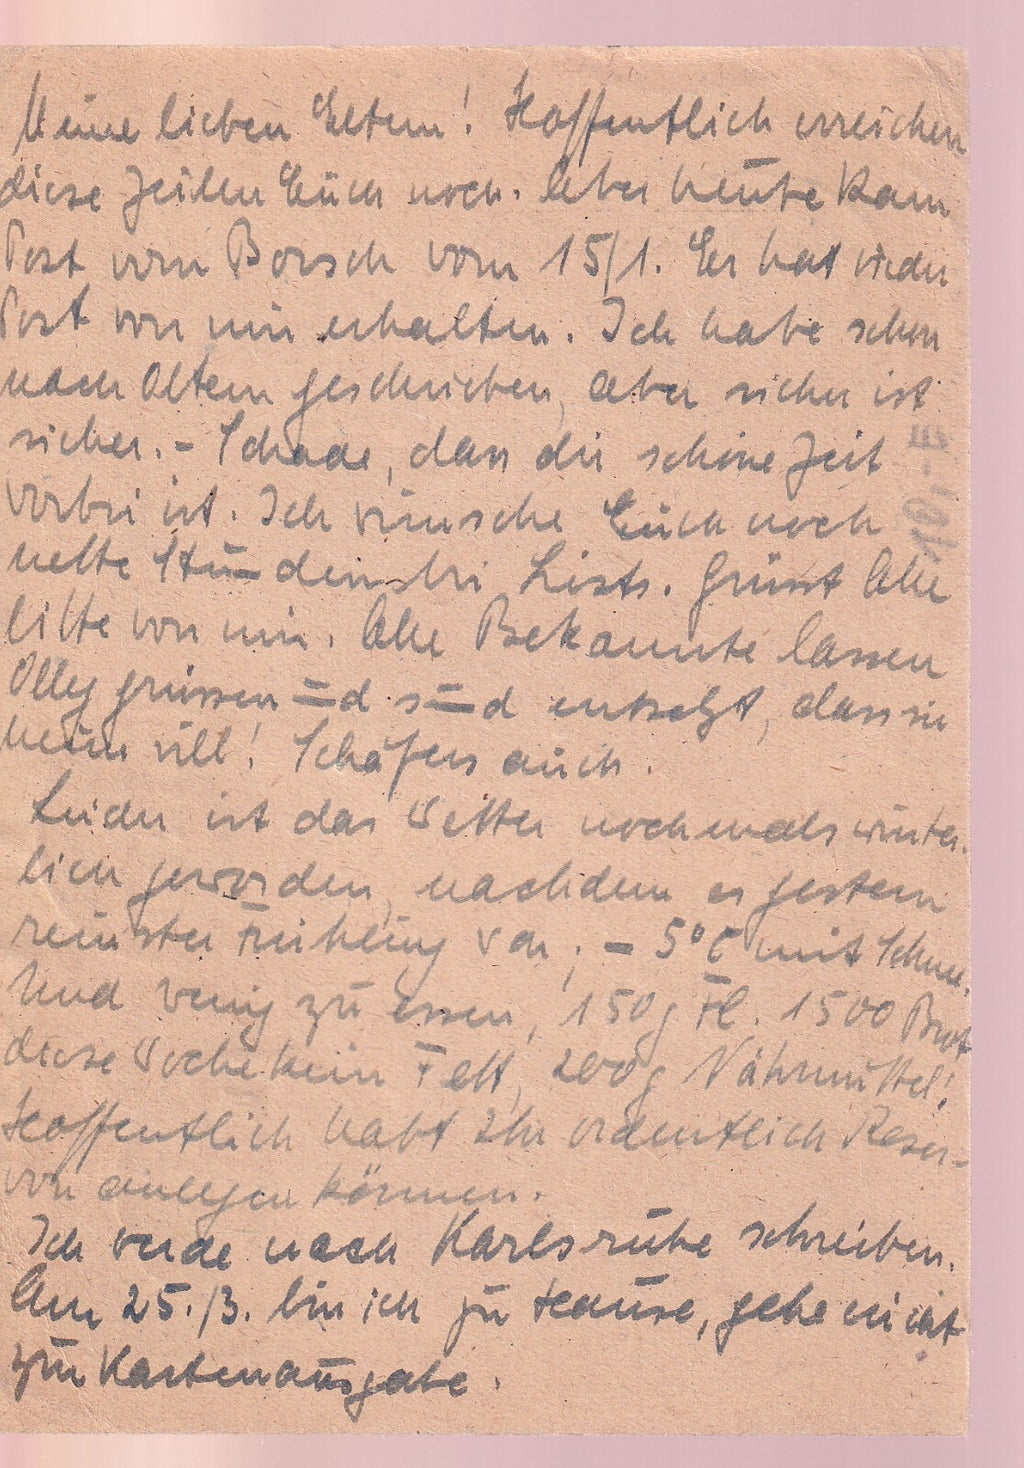 Meine lieben Eltern! Hoffentlich erreichen
diese Zeilen Euch noch. Aber heute kam
Post vom Borsch vom 15/1. Er hat wieder
Post von mir erhalten. Ich habe schon
nach Altem geschrieben, aber sicher ist
sicher. - Schade, dass die schöne Zeit
vorbei ist. Ich wünsche Euch noch
nette Stunden bei Lists. Grüsst Alle
bitte von mir. Alle Bekannte lassen
Olly grüssen und sind entsetzt, dass sie
heim will! Schäfers auch.
Leider ist das Wetter nochmals winter-
lich geworden, nachdem es gestern
reinster Frühling war; - 5°C mit Schnee.
Und wenig zu essen, 150g Fl. 1500 Brot
diese Woche kein Fett, 200g Nährmittel!
Hoffentlich habt Ihr ordentlich Reser-
ven anlegen können.
Ich werde nach Karlsruhe schreiben.
Am 25./3. bin ich zu Hause, gehe nicht
zur Kartenausgabe.
10,- E